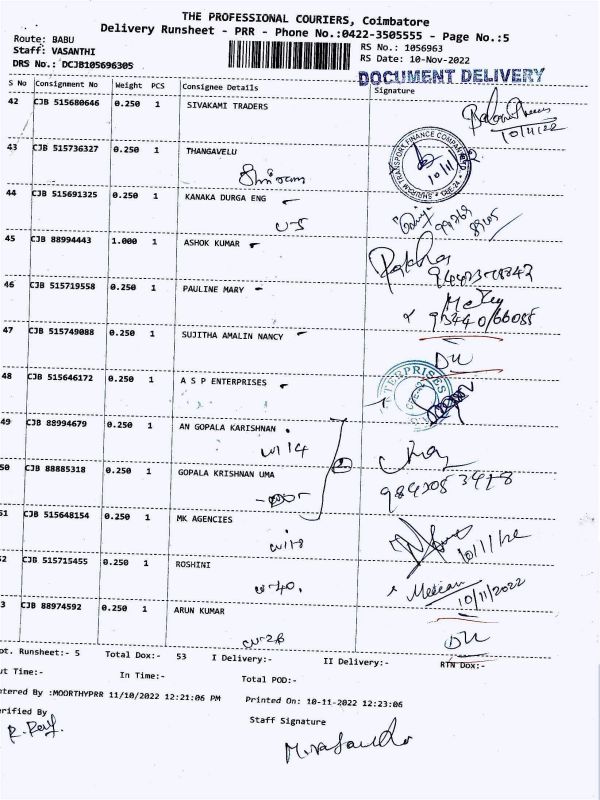 THE PROFESSIONAL COURIERS, Coimbatore
Delivery Runsheet - PRR - Phone No.:0422-3505555 - Page No.:5
Route: BABU
RS No.: 1056963
Staff: VASANTHI
RS Date: 10-Nov-2022
DRS No.: DCJB105696305
DOCUMENT DELIVERY
S No Consignment No Weight PCS Consignee Details Signature
42 CJB 515680646 0.250 1 SIVAKAMI TRADERS
10/11/22
43 CJB 515736327 0.250 1 THANGAVELU
TRANSPORT FINANCE COMPANY
10/11
Shriram
44 CJB 515691325 0.250 1 KANAKA DURGA ENG
45 CJB 88994443 1.000 1 ASHOK KUMAR
46 CJB 515719558 0.250 1 PAULINE MARY
47 CJB 515749088 0.250 1 SUJITHA AMALIN NANCY
DU
48 CJB 515646172 0.250 1 A S P ENTERPRISES
TERPRISES
49 CJB 88994679 0.250 1 AN GOPALA KARISHNAN
50 CJB 88885318 0.250 1 GOPALA KRISHNAN UMA
51 CJB 515648154 0.250 1 MK AGENCIES
10/11/22
52 CJB 515715455 0.250 1 ROSHINI
10/11/2022
53 CJB 88974592 0.250 1 ARUN KUMAR
DU
ot. Runsheet:- 5 Total Dox:- 53 I Delivery:- II Delivery:- RTN Dox:-
ut Time:- In Time:- Total POD:-
ntered By :MOORTHYPRR 11/10/2022 12:21:06 PM Printed On: 10-11-2022 12:23:06
erified By Staff Signature